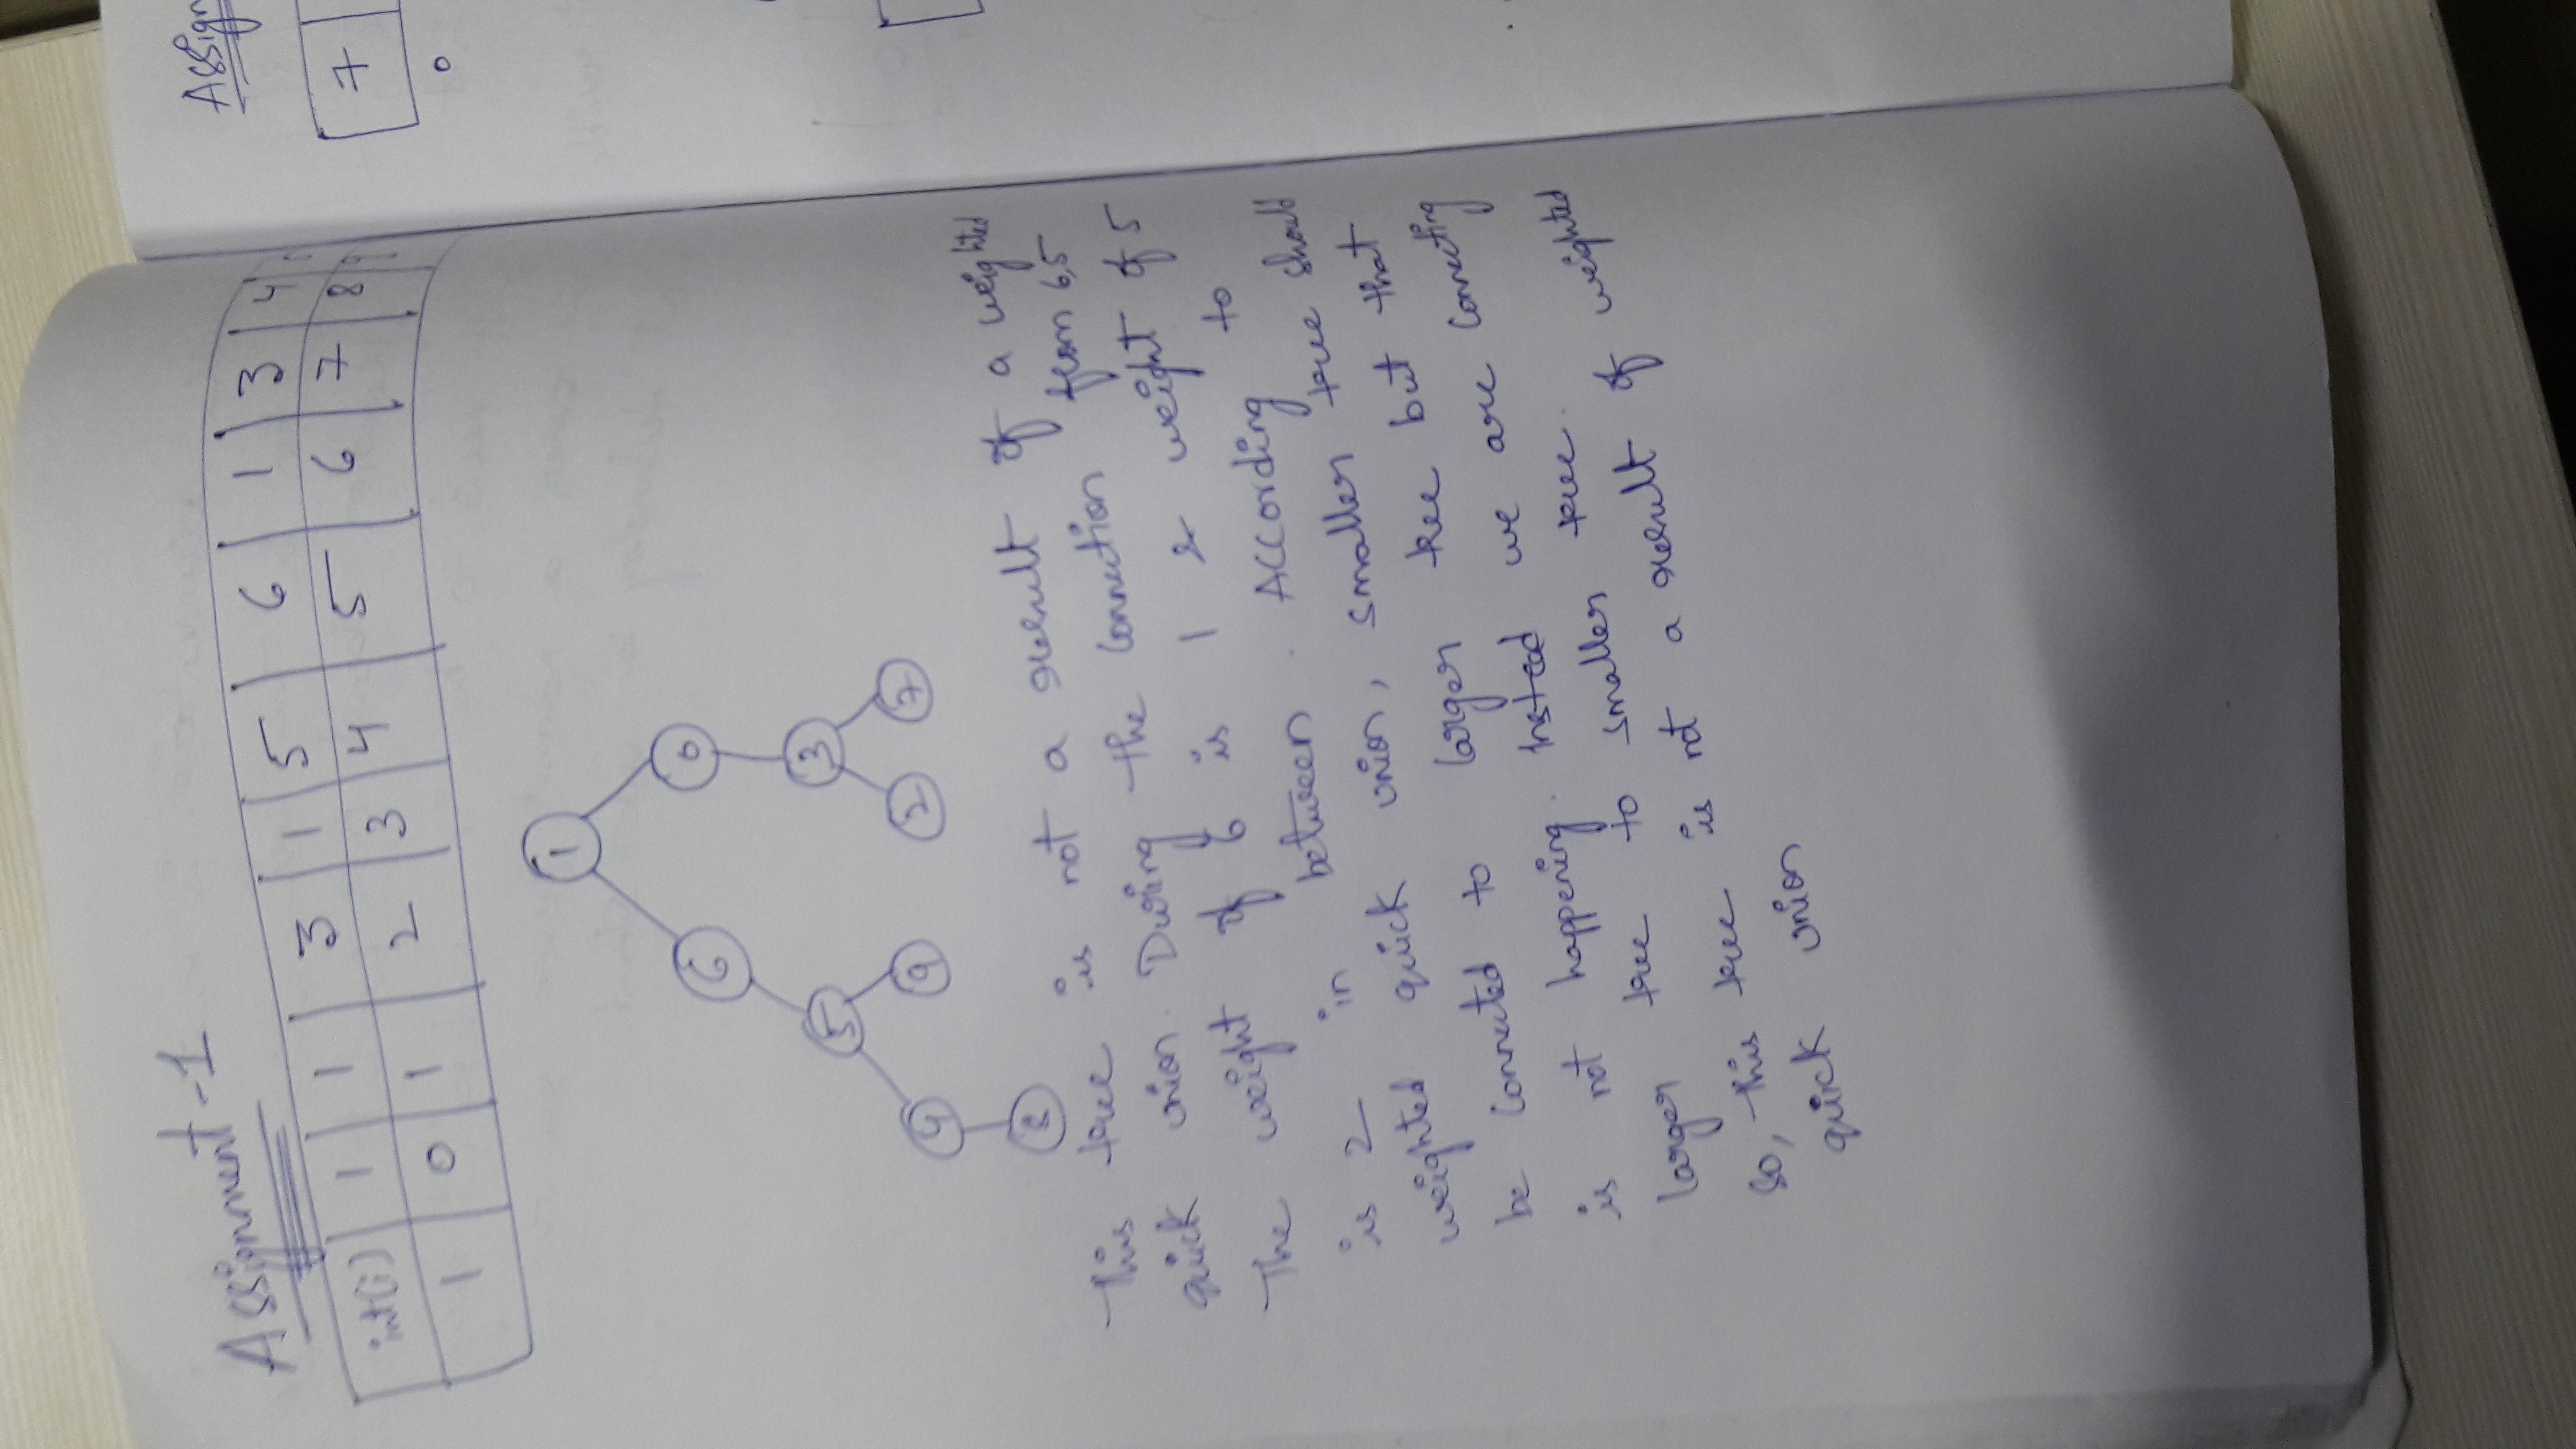 Assignment-1
int(i) 1 1 3 1 5 6 1 3 4
1 0 1 2 3 4 5 6 7 8 9
1
6 0
5 3
4 9 2 7
8
This tree is not a result of a weighted
quick union. During the connection from 6,5
The weight of 6 is 1 & weight of 5
is 2 in between. According to
weighted quick union, smaller tree should
be connected to larger tree but that
is not happening. Instead we are connecting
larger tree to smaller tree.
So, this tree is not a result of weighted
quick union
Assign
7
0